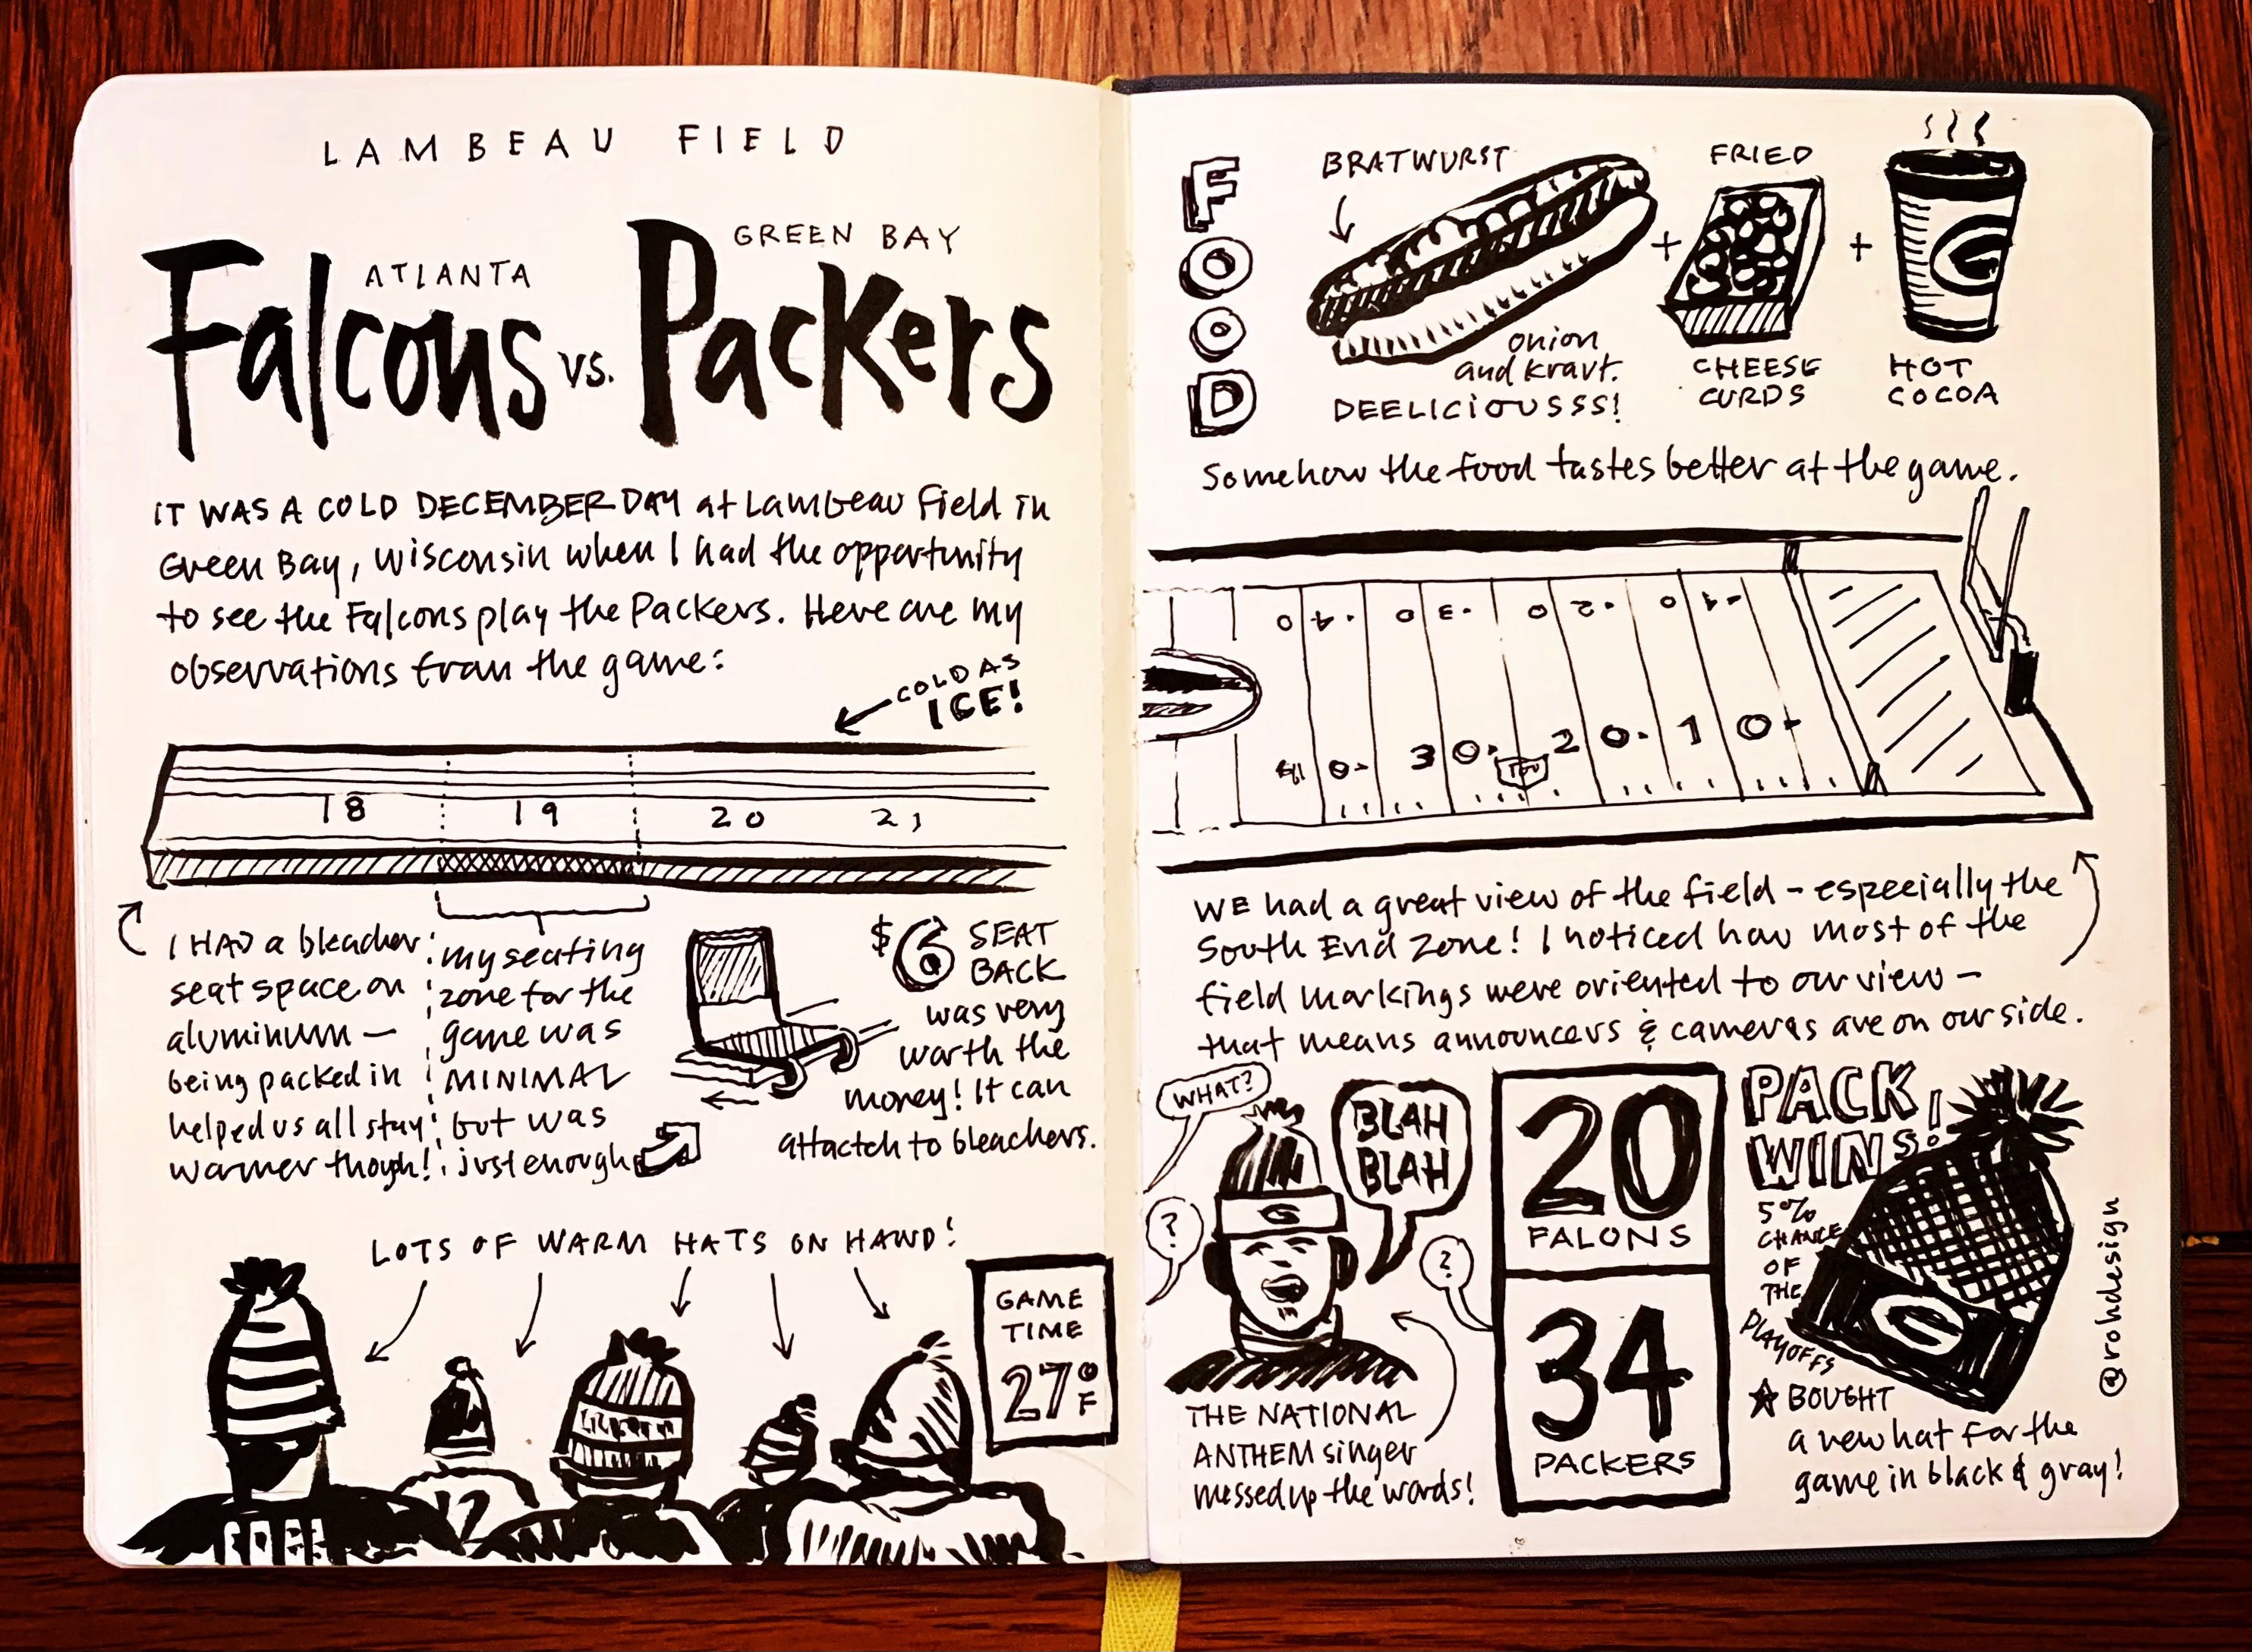 LAMBEAU FIELD
ATLANTA
Falcons vs.
GREEN BAY
Packers
IT WAS A COLD DECEMBER DAY at Lambeau Field in
Green Bay, Wisconsin when I had the opportunity
to see the Falcons play the Packers. Here are my
observations from the game:
COLD AS
ICE!
18 19 20 21
I HAD a bleacher
seat space on
aluminum —
being packed in
helped us all stay
warmer though!
my seating
zone for the
game was
MINIMAL
but was
just enough
$6 SEAT
BACK
was very
worth the
money! It can
attactch to bleachers.
LOTS OF WARM HATS ON HAND!
GAME
TIME
27°
F
12
FOOD
BRATWURST
onion
and kraut.
DEELICIOUSSS!
+
FRIED
CHEESE
CURDS
+
G
HOT
COCOA
Somehow the food tastes better at the game.
40 30 20 10
40 30 20 10
WE had a great view of the field – especially the
South End Zone! I noticed how most of the
field markings were oriented to our view –
that means announcers & cameras are on our side.
WHAT?
?
G
BLAH
BLAH
?
THE NATIONAL
ANTHEM singer
messed up the words!
20
FALONS
34
PACKERS
PACK
WINS!
5%
CHANCE
OF
THE
PLAYOFFS
G
★ BOUGHT
a new hat for the
game in black & gray!
@rohdesign